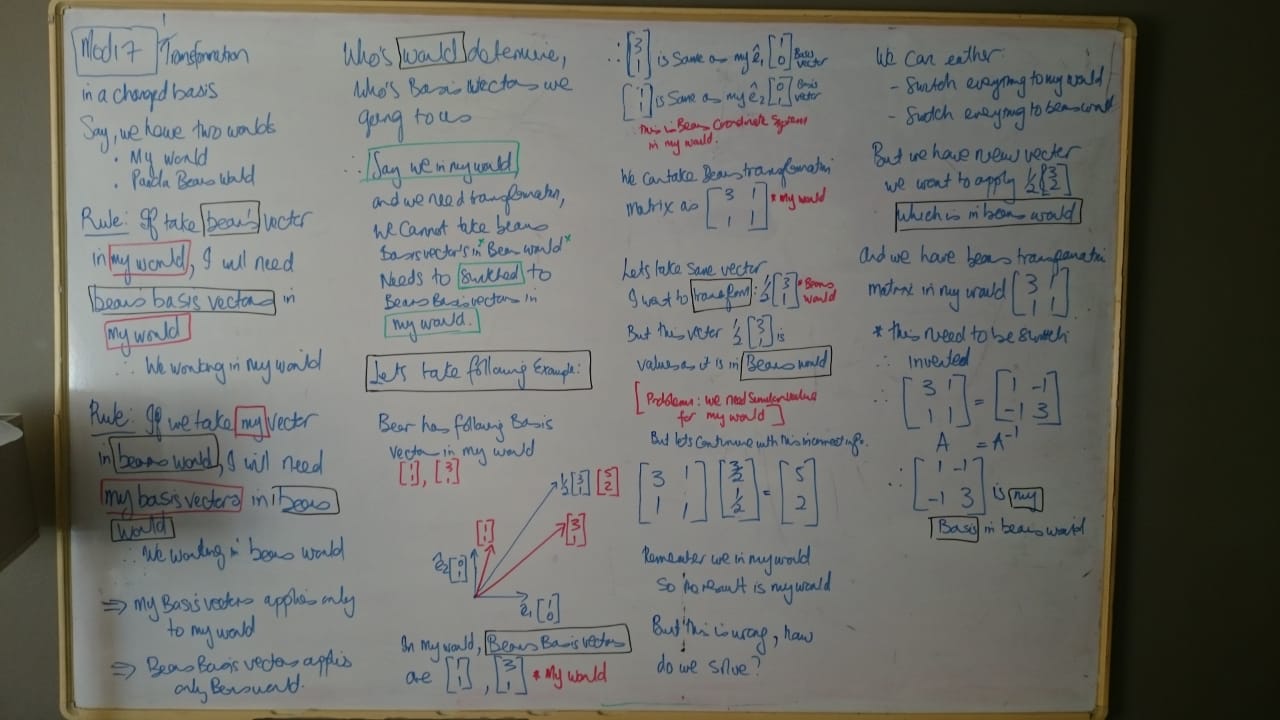 Mod 7 Transformation
in a changed basis
Say, we have two worlds
• My world
• Panda Bears World
Rule: If take bear's vector
in my world, I will need
bear's basis vectors in
my world
∴ We working in my world
Rule: If we take my vector
in bears world, I will need
my basis vectors in bears
world
∴ We working in bears world
⇒ my Basis vectors applies only
to my world
⇒ Bears Basis vectors applis
only Bersworld.
Who's would determine,
Who's Basis Vectors we
going to us
∴ Say we in my world
and we need transformation,
We cannot take bears
Basis vector's in "Bear world"
Needs to switched to
Bears Basis vectors in
my world.
Lets take following Example:
Bear has following Basis
Vector in my world
[1 1], [3 1]
1/2 [3 1] [5 2]
[1 1]
[3 1]
ê2 [0 1]
ê1 [1 0]
In my world, Bears Basis vectors
are [1 1], [3 1] * My world
∴ [3 1] is same as my ê1 [1 0] Basis vector
[1 1] is same as my ê2 [0 1] Basis vector
This is Bears Coordinate System
in my world.
We can take Bears transformation
matrix as [3 1 1 1] * my world
Lets take same vector
I want to transform: 1/2 [3 1] * Bears world
But this vector 1/2 [3 1] is
values as it is in Bears world
[Problem: we need similar value
for my world]
But lets continue with this incorrect info.
[3 1 1 1] [3/2 1/2] = [5 2]
Remember we in my world
So no result is my world
But this is wrong, how
do we solve?
We can either
- Switch everything to my world
- Switch everything to bears world
But we have new vector
we want to apply 1/2 [3 2]
which is in bears world
and we have bears transformation
matrix in my world [3 1 1 1]
* this need to be switch
∴ Invented
∴ [3 1 1 1] = [1 -1 -1 3]
A = A⁻¹
∴ [1 -1 -1 3] is my
Basis in bears world